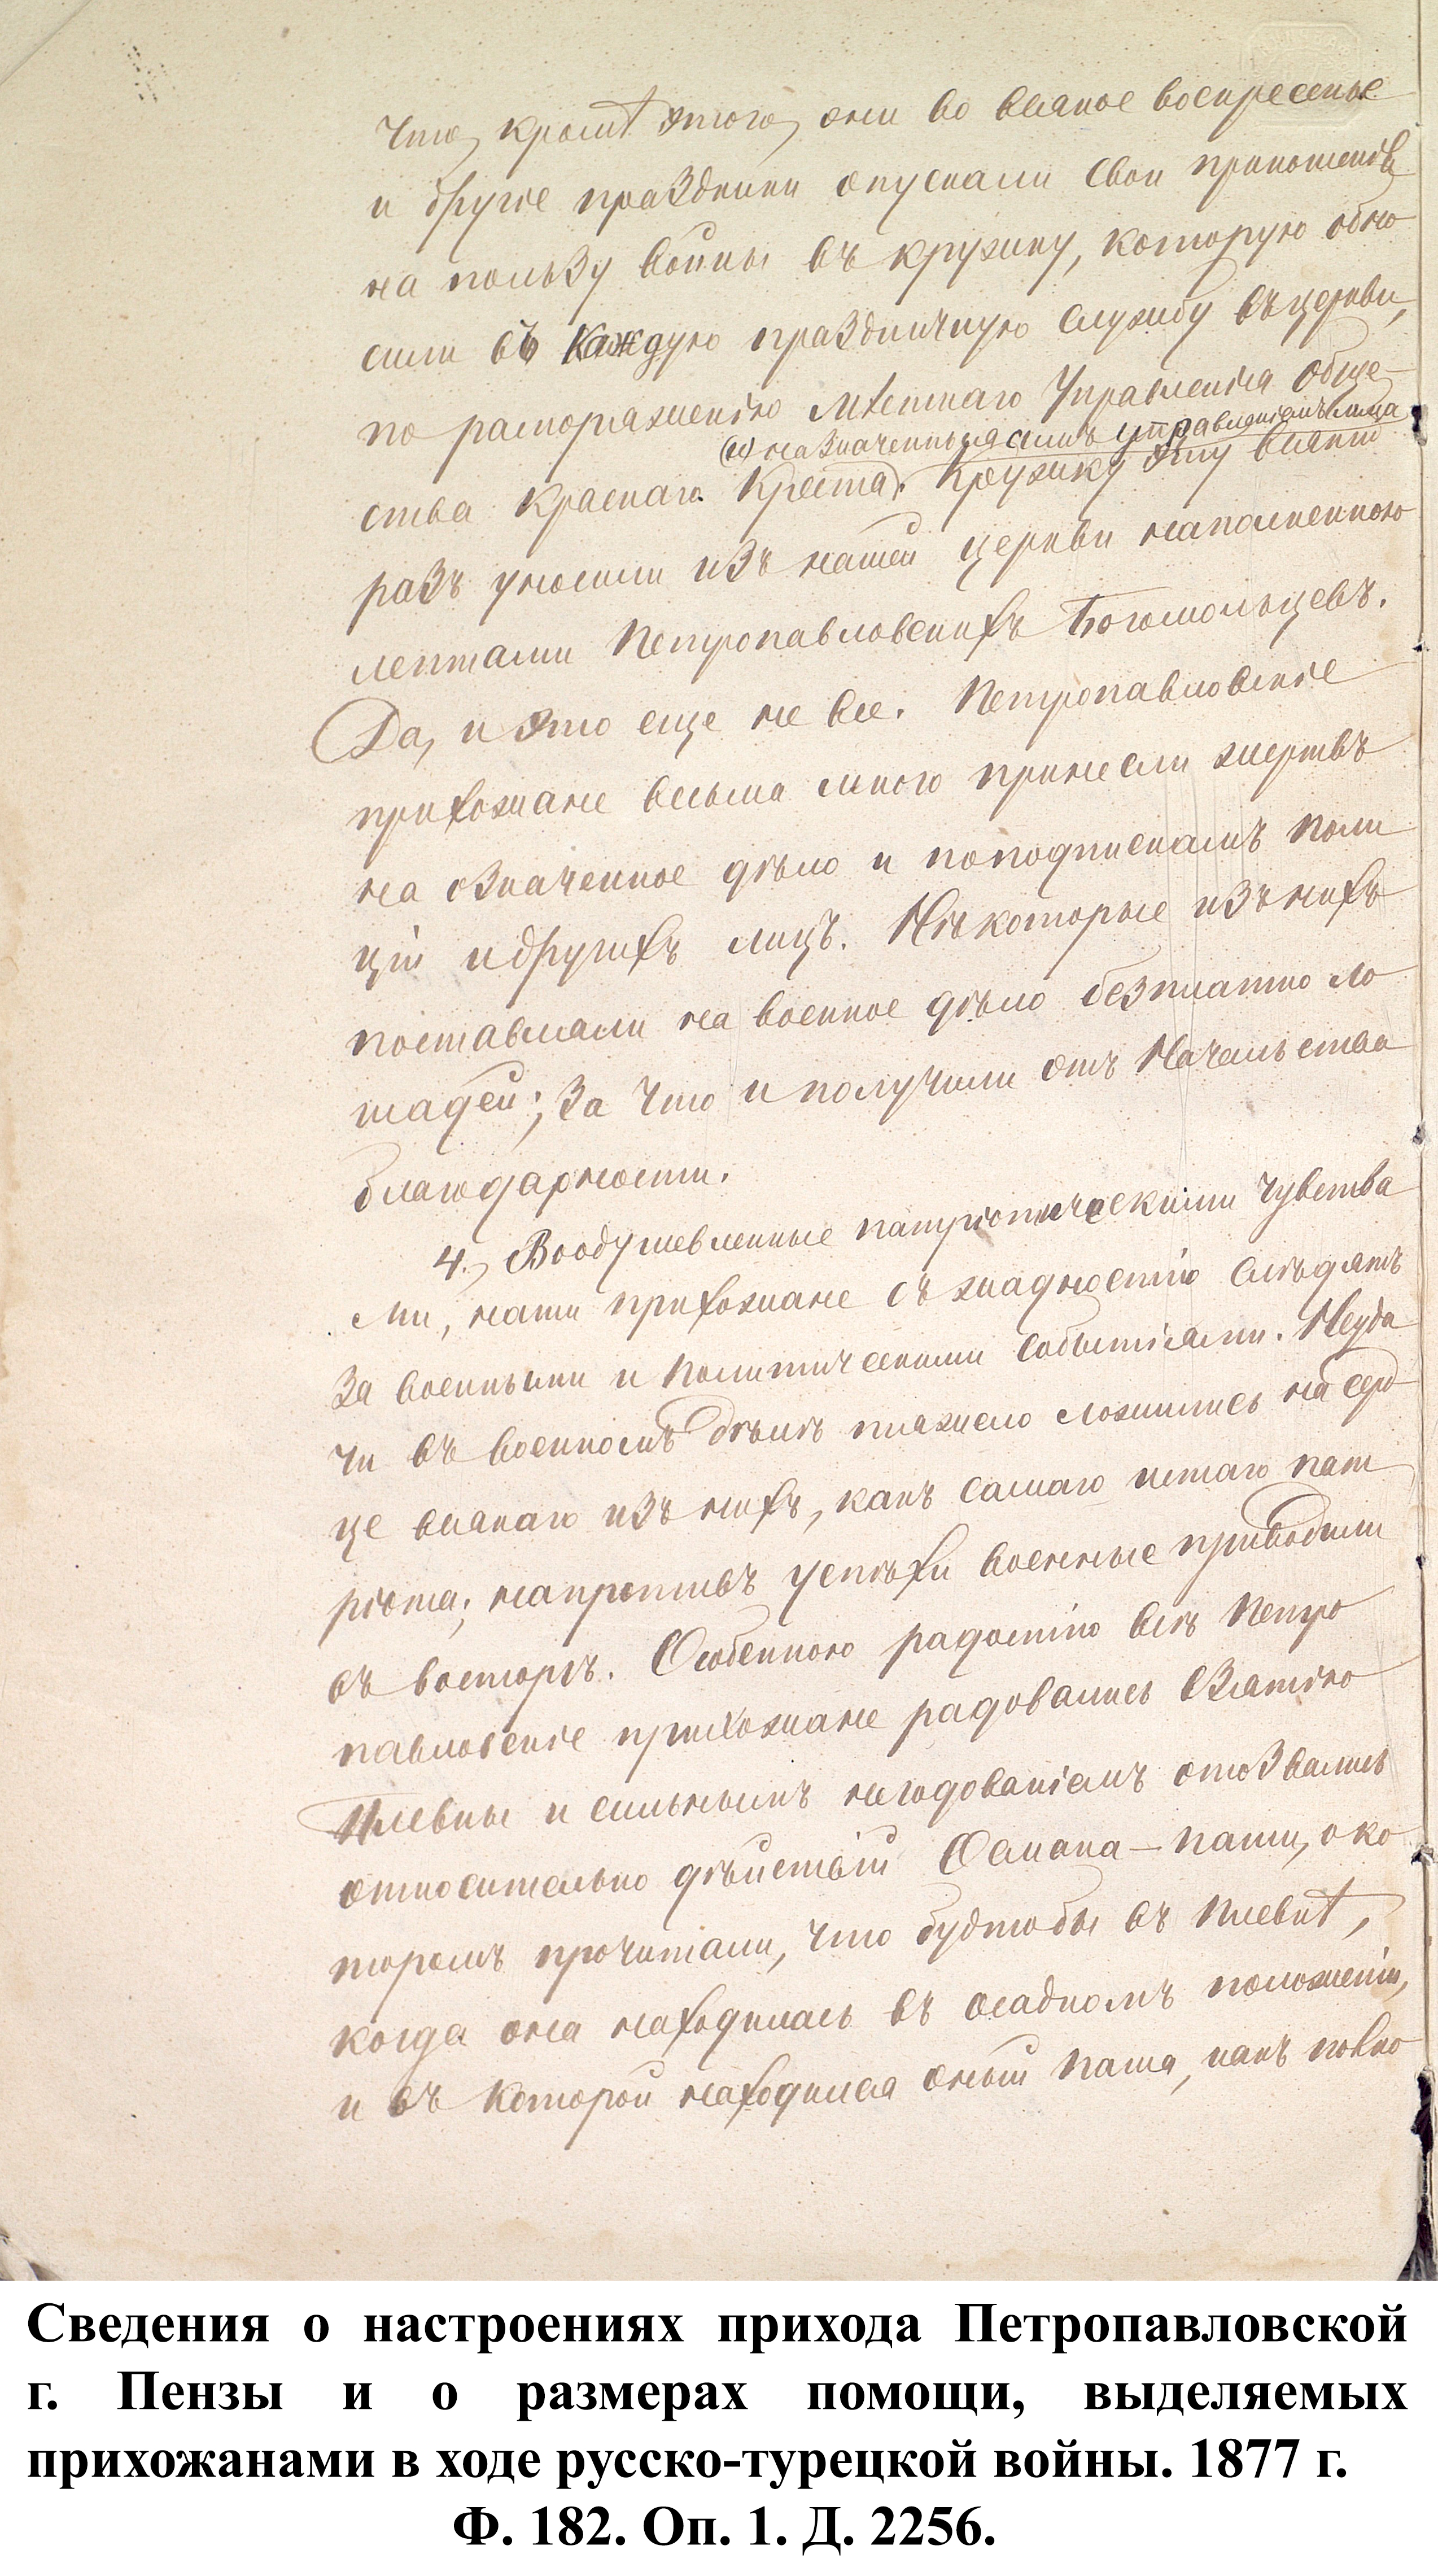 что, кромѣ этого, они во всякое воскресенье
и другіе праздники опускали свои приношенія
на пользу войны въ кружку, которую обно
сили въ каждую праздничную службу въ церкви,
по распоряженію мѣстнаго Управленія обще-
(и) назначенныя симъ управленіемъ лица
ства Краснаго Креста). Кружку эту всякій
разъ уносили изъ нашей церкви наполненною
лептами Петропавловскихъ Богомольцевъ.
Да, и это еще не все. Петропавловскіе
прихожане весьма много принесли жертвъ
на означенное дѣло и по подпискамъ поли
ціи и другихъ лицъ. Нѣкоторые изъ нихъ
поставляли на военное дѣло безплатно ло
шадей; за что и получили отъ Начальства
благодарности.
4., Воодушевленные патріотическими чувства
ми, наши прихожане съ жадностію слѣдятъ
за военными и политическими событіями. Неуда
чи въ военномъ дѣлѣ тяжело ложились на серд
це всякаго изъ нихъ, какъ самаго истаго пат
ріота; напротивъ успѣхи военные приводили
въ восторгъ. Особенною радостію всѣ Петро
павловскіе прихожане радовались взятію
Плевны и сильнымъ негодованіемъ отозвались
относительно дѣйствій Османа-паши, о ко
торомъ прочитали, что будтобы въ Плевнѣ,
когда она находилась въ осадномъ положеніи,
и въ которой находился оный паша, какъ
Сведения о настроениях прихода Петропавловской
г. Пензы и о размерах помощи, выделяемых
прихожанами в ходе русско-турецкой войны. 1877 г.
Ф. 182. Оп. 1. Д. 2256.